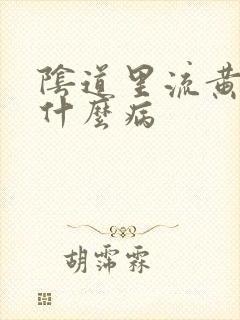 陰道里流黃
什麼病
胡霈霖